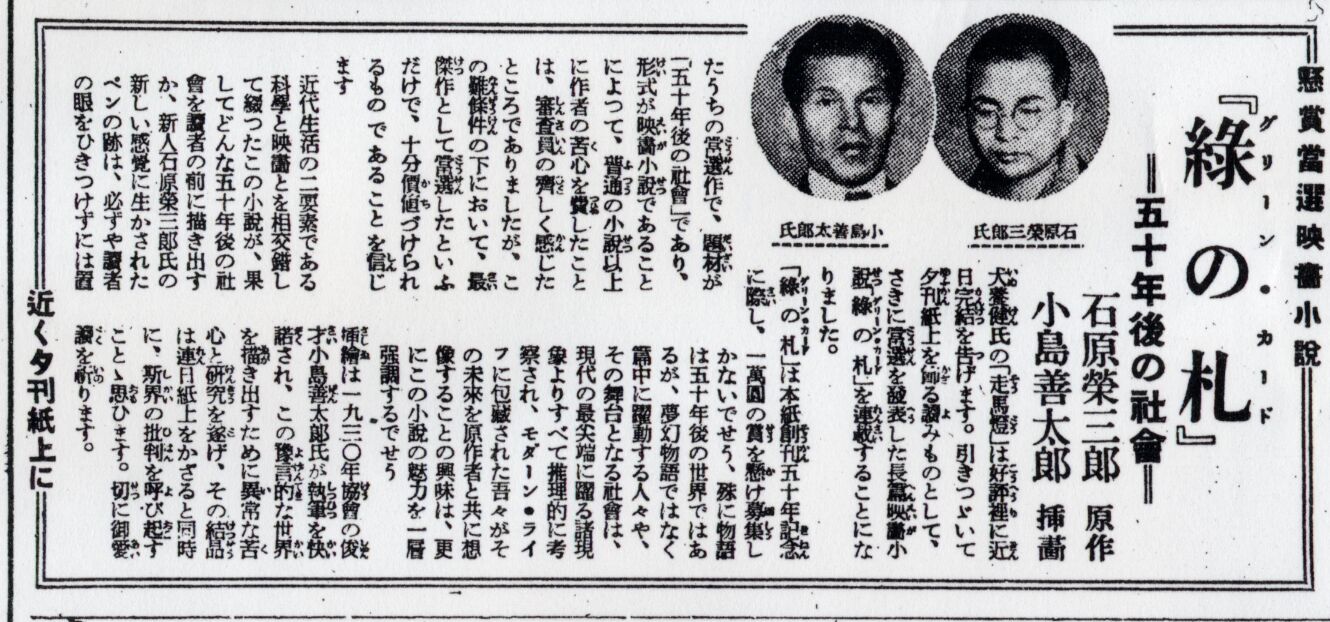 懸賞當選映畵小說
『綠の札』
グリーン・カード
＝五十年後の社會＝
石原榮三郎 原作
小島善太郎 挿畵
石原榮三郎氏
小島善太郎氏
犬養健氏の「走馬燈」は好評裡に近
日完結を告げます。引きつゞいて
夕刊紙上を飾る讀みものとして、
さきに當選を發表した長篇映畵小
說「綠の札」を連載することにな
りました。
「綠の札」は本紙創刊五十年記念
に際し、一萬圓の賞を懸け募集し
たうちの當選作で、題材が
「五十年後の社會」であり、
形式が映畵小說であること
によつて、普通の小說以上
に作者の苦心を費したこと
は、審査員の齊しく感じた
ところでありましたが、こ
の難條件の下において、最
傑作として當選したといふ
だけで、十分價値づけられ
るものであることを信じ
ます
近代生活の二要素である
科學と映畵とを相交錯し
て綴つたこの小說が、果
してどんな五十年後の社
會を讀者の前に描き出す
か、新人石原榮三郎氏の
新しい感覺に生かされた
ペンの跡は、必ずや讀者
の眼をひきつけずには置
かないでせう、殊に物語
は五十年後の世界ではあ
るが、夢幻物語ではなく
篇中に躍動する人々や、
その舞台となる社會は、
現代の最尖端に躍る諸現
象よりすべて推理的に考
察され、モダーン・ライ
フに包藏された吾々がそ
の未來を原作者と共に想
像することの興味は、更
にこの小說の魅力を一層
強調するでせう
挿繪は一九三〇年協會の俊
才小島善太郎氏が執筆を快
諾され、この豫言的な世界
を描き出すために異常な苦
心と研究を遂げ、その結晶
は連日紙上をかざると同時
に、斯界の批判を呼び起す
ことゝ思ひます。切に御愛
讀を祈ります。
＝近く夕刊紙上に＝